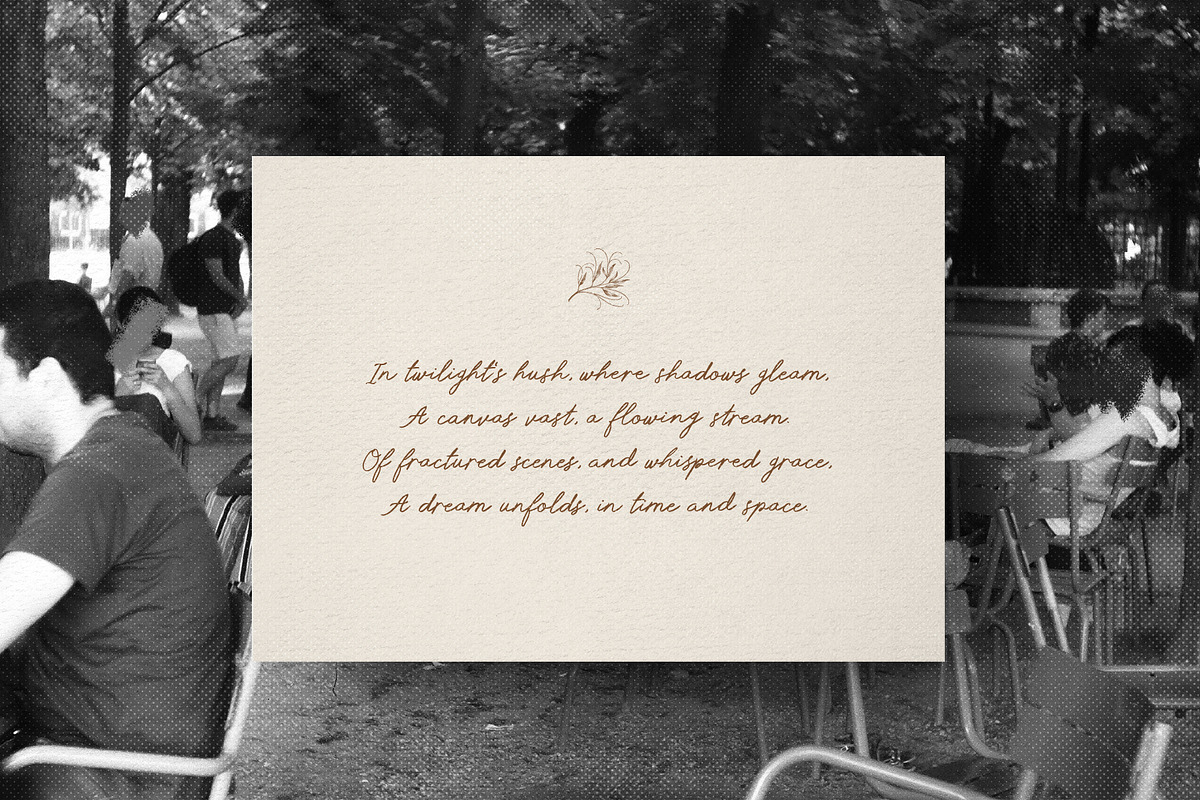 In twilight's hush, where shadows gleam,
A canvas vast, a flowing stream.
Of fractured scenes, and whispered grace,
A dream unfolds, in time and space.